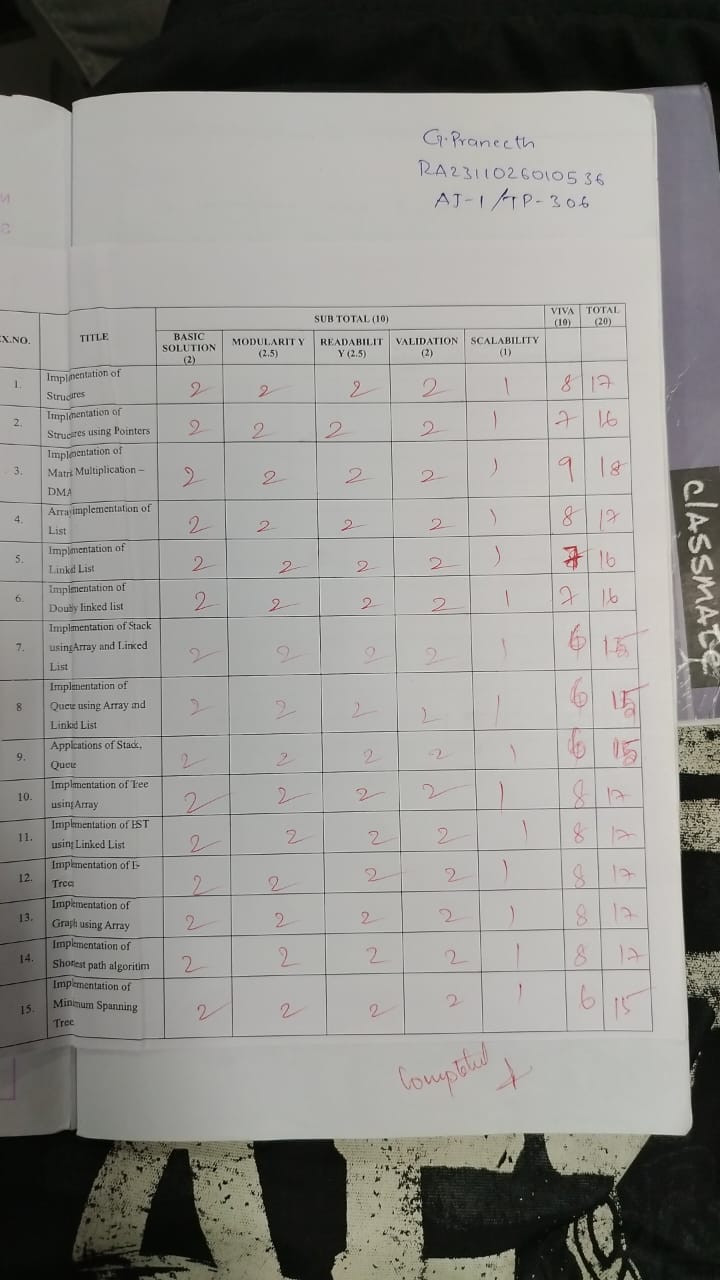 G.Praneeth
RA2311026010536
AJ-1/TP-306
SUB TOTAL (10) VIVA (10) TOTAL (20)
EX.NO. TITLE BASIC SOLUTION (2) MODULARIT Y (2.5) READABILIT Y (2.5) VALIDATION (2) SCALABILITY (1)
1. Implmentation of Strucures 2 2 2 2 1 8 17
2. Implmentation of Strucures using Pointers 2 2 2 2 1 7 16
3. Implmentation of Matri Multiplication – DMA 2 2 2 2 1 9 18
4. Array implementation of List 2 2 2 2 1 8 17
5. Implmentation of Linked List 2 2 2 2 1 7 16
6. Implmentation of Doubly linked list 2 2 2 2 1 7 16
7. Implmentation of Stack using Array and Linked List 2 2 2 2 1 6 15
8 Implmentation of Queue using Array and Linked List 2 2 2 2 1 6 15
9. Applications of Stack, Queue 2 2 2 2 1 6 15
10. Implmentation of Tree using Array 2 2 2 2 1 8 17
11. Implmentation of BST using Linked List 2 2 2 2 1 8 17
12. Implmentation of B-Tree 2 2 2 2 1 8 17
13. Implementation of Graph using Array 2 2 2 2 1 8 17
14. Implementation of Shortest path algoritim 2 2 2 2 1 8 17
15. Implementation of Minimum Spanning Tree 2 2 2 2 1 6 15
Completed
CLASSMATE